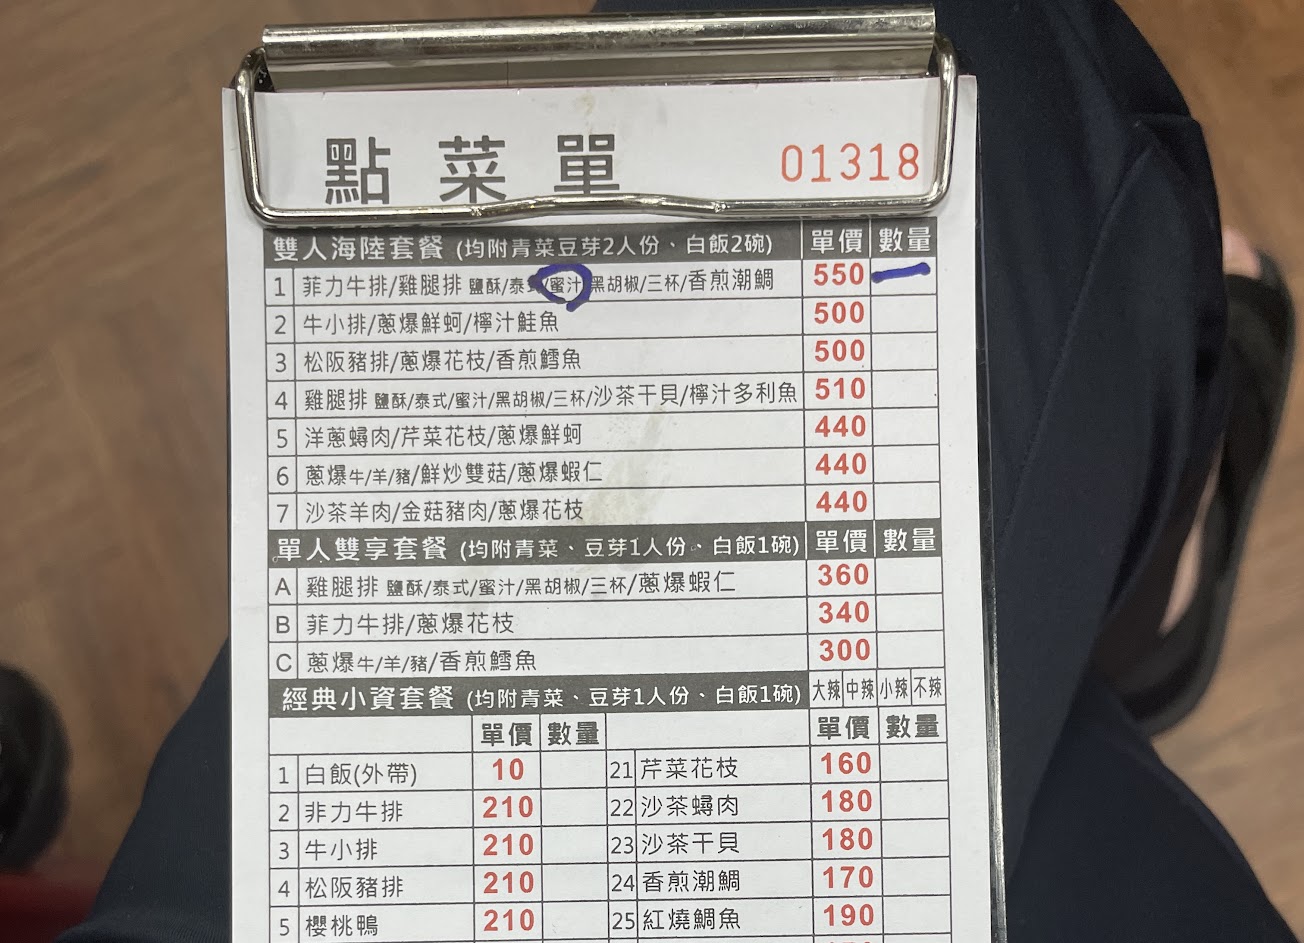 點菜單 01318
雙人海陸套餐 (均附青菜豆芽2人份、白飯2碗) 單價 數量
1 菲力牛排/雞腿排 鹽酥/泰式/蜜汁/黑胡椒/三杯/香煎潮鯛 550 一
2 牛小排/蔥爆鮮蚵/檸汁鮭魚 500
3 松阪豬排/蔥爆花枝/香煎鱈魚 500
4 雞腿排 鹽酥/泰式/蜜汁/黑胡椒/三杯/沙茶干貝/檸汁多利魚 510
5 洋蔥蟳肉/芹菜花枝/蔥爆鮮蚵 440
6 蔥爆牛/羊/豬/鮮炒雙菇/蔥爆蝦仁 440
7 沙茶羊肉/金菇豬肉/蔥爆花枝 440
單人雙享套餐 (均附青菜、豆芽1人份、白飯1碗) 單價 數量
A 雞腿排 鹽酥/泰式/蜜汁/黑胡椒/三杯/蔥爆蝦仁 360
B 菲力牛排/蔥爆花枝 340
C 蔥爆牛/羊/豬/香煎鱈魚 300
經典小資套餐 (均附青菜、豆芽1人份、白飯1碗) 大辣 中辣 小辣 不辣
單價 數量 單價 數量
1 白飯(外帶) 10 21 芹菜花枝 160
2 菲力牛排 210 22 沙茶蟳肉 180
3 牛小排 210 23 沙茶干貝 180
4 松阪豬排 210 24 香煎潮鯛 170
5 櫻桃鴨 210 25 紅燒鯛魚 190